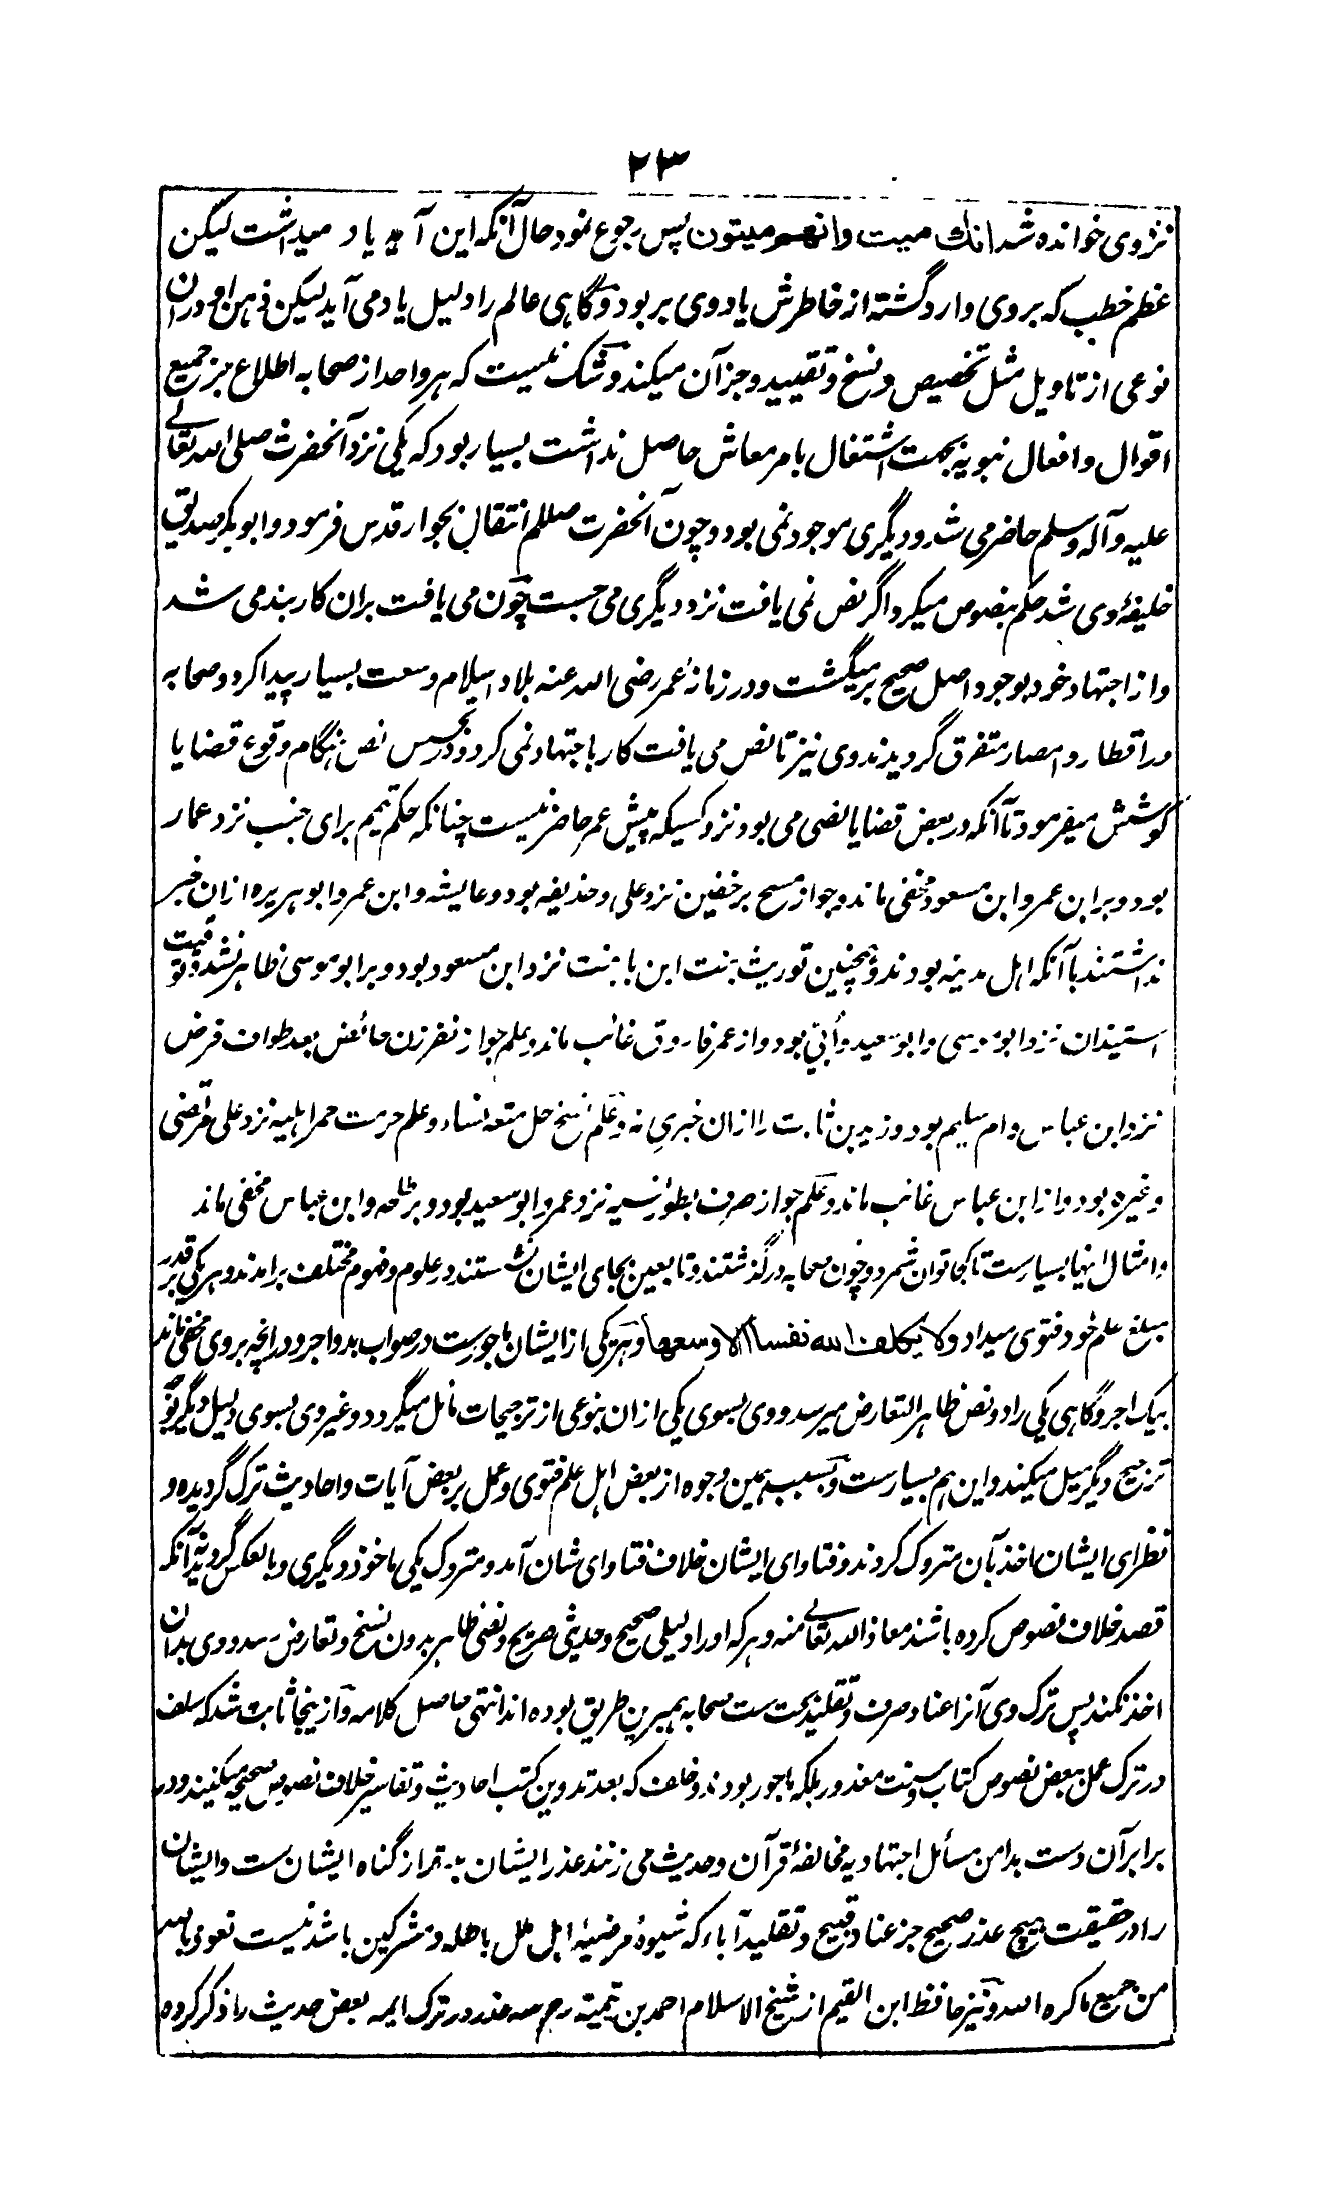 ۲۳
نزد وی خوانده شد انك ميت وانهم ميتون پس رجوع نمود حال آنکه این آیه یاد میداشت لیکن
عظم خطب که بروی وارد گشته از خاطرش یاد وی بر بود و گاهی عالم را دلیل یاد می آید لیکن ذهن او دران
نوعی از تاویل مثل تخصیص و نسخ و تقیید و جز آن میکند و شک نیست که هر واحد از صحابه اطلاع بر جمیع
اقوال و افعال نبویه بجهت اشتغال بامر معاش حاصل نداشت بسیار بود که یکی نزد آنحضرت صلی الله تعالے
علیه و آله وسلم حاضر می شد و دیگری موجود نمی بود و چون آنحضرت صللم انتقال بجوار قدس فرمود و ابوبکر صدیق
خلیفۀ وی شد حکم بنصوص میکرد اگر نص نمی یافت نزد دیگری می جست چون می یافت بران کاربند می شد
و از اجتهاد خود بوجود اصل صحیح بر میگشت و در زمانۀ عمر رضی الله عنه بلاد اسلام وسعت بسیار پیدا کرد و صحابه
در اقطار و امصار متفرق گردیدند وی نیز تا نص می یافت کار باجتهاد نمی کرد و در تجسس نص هنگام وقوع قضایا
کوشش میفرمود تا آنکه در بعض قضایا نصی می بود نزد کسیکه پیش عمر حاضر نیست چنانکه حکم تیمم برای جنب نزد عمار
بود و بر ابن عمر و ابن مسعود مخفی ماند و جواز مسح بر خفین نزد علی و حذیفه بود و عایشه و ابن عمر و ابو هریره ازان خبر
نداشتند با آنکه اهل مدینه بودند و همچنین توریث بنت ابن با بنت نزد ابن مسعود بود و بر ابو موسی ظاهر نشد و توقیت
استیذان نزد ابو موسی و ابو سعید و اُبیّ بود و از عمر فاروق غائب ماند و علم جواز نفر زن حائض بعد طواف فرض
نزد ابن عباس و ام سلیم بود و زید بن ثابت را ازان خبری نه و علم نسخ حل متعه نساء و علم حرمت حمر اهلیه نزد علی مرتضی
و غیره بود و از ابن عباس غائب ماند و علم جواز صرف بطور نسیه نزد عمر و ابو سعید بود و بر طلحه و ابن عباس مخفی ماند
و امثال اینها بسیارست تا کجا توان شمرد و چون صحابه درگذشتند و تابعین بجای ایشان نشستند و علوم و فهوم مختلف برآمدند و هر یکی بر قدر
مبلغ علم خود فتوی میداد و لا يكلف الله نفسا الا وسعها و هر یکی از ایشان ماجورست در صواب بدو اجر و در انچه بروی مخفی ماند
بیک اجر و گاهی یکی را دو نص ظاهر التعارض میرسد و وی بسوی یکی ازان بنوعی از ترجیحات مائل میگردد و غیر وی بسوی دلیل دیگر بنوع
ترجیح دیگر میل میکند و این هم بسیارست و بسبب همین وجوه از بعض اهل علم فتوی و عمل بر بعض آیات و احادیث ترک گردیده و
نظرای ایشان اخذ بآن متروک کردند و فتاوای ایشان خلاف فتاوای شان آمد و متروک یکی ماخوذ دیگری و بالعکس گردید نه آنکه
قصد خلاف نصوص کرده باشند معاذ الله تعالے منه و هر که او را دلیلی صحیح و حدیثی صریح و نصی ظاهر بدون نسخ و تعارض رسد و وی بدان
اخذ نکند پس ترک وی آنرا عناد صرف و تقلید بحت ست صحابه بهمیرین طریق بوده اند انتهی حاصل کلامه و از ینجا ثابت شد که سلف
در ترک عمل ببعض نصوص کتاب و سنت معذور بلکه ماجور بودند و خلف که بعد تدوین کتب احادیث و تفاسیر خلاف نصوص صحیحه میکنند و در
برابر آن دست بدامن مسائل اجتهادیه مخالفۀ قرآن و حدیث می زنند عذر ایشان بدتر از گناه ایشان ست و ایشان
را در حقیقت هیچ عذر صحیح جز عناد قبیح و تقلید آباء که شیوۀ مرضیۀ اهل ملل باطله و مشرکین باشد نیست نعوذ بالله
من جمیع ما کره الله و نیز حافظ ابن القیم از شیخ الاسلام احمد بن تیمیه رح سه عذر در ترک ایمه بعض حدیث را ذکر کرده